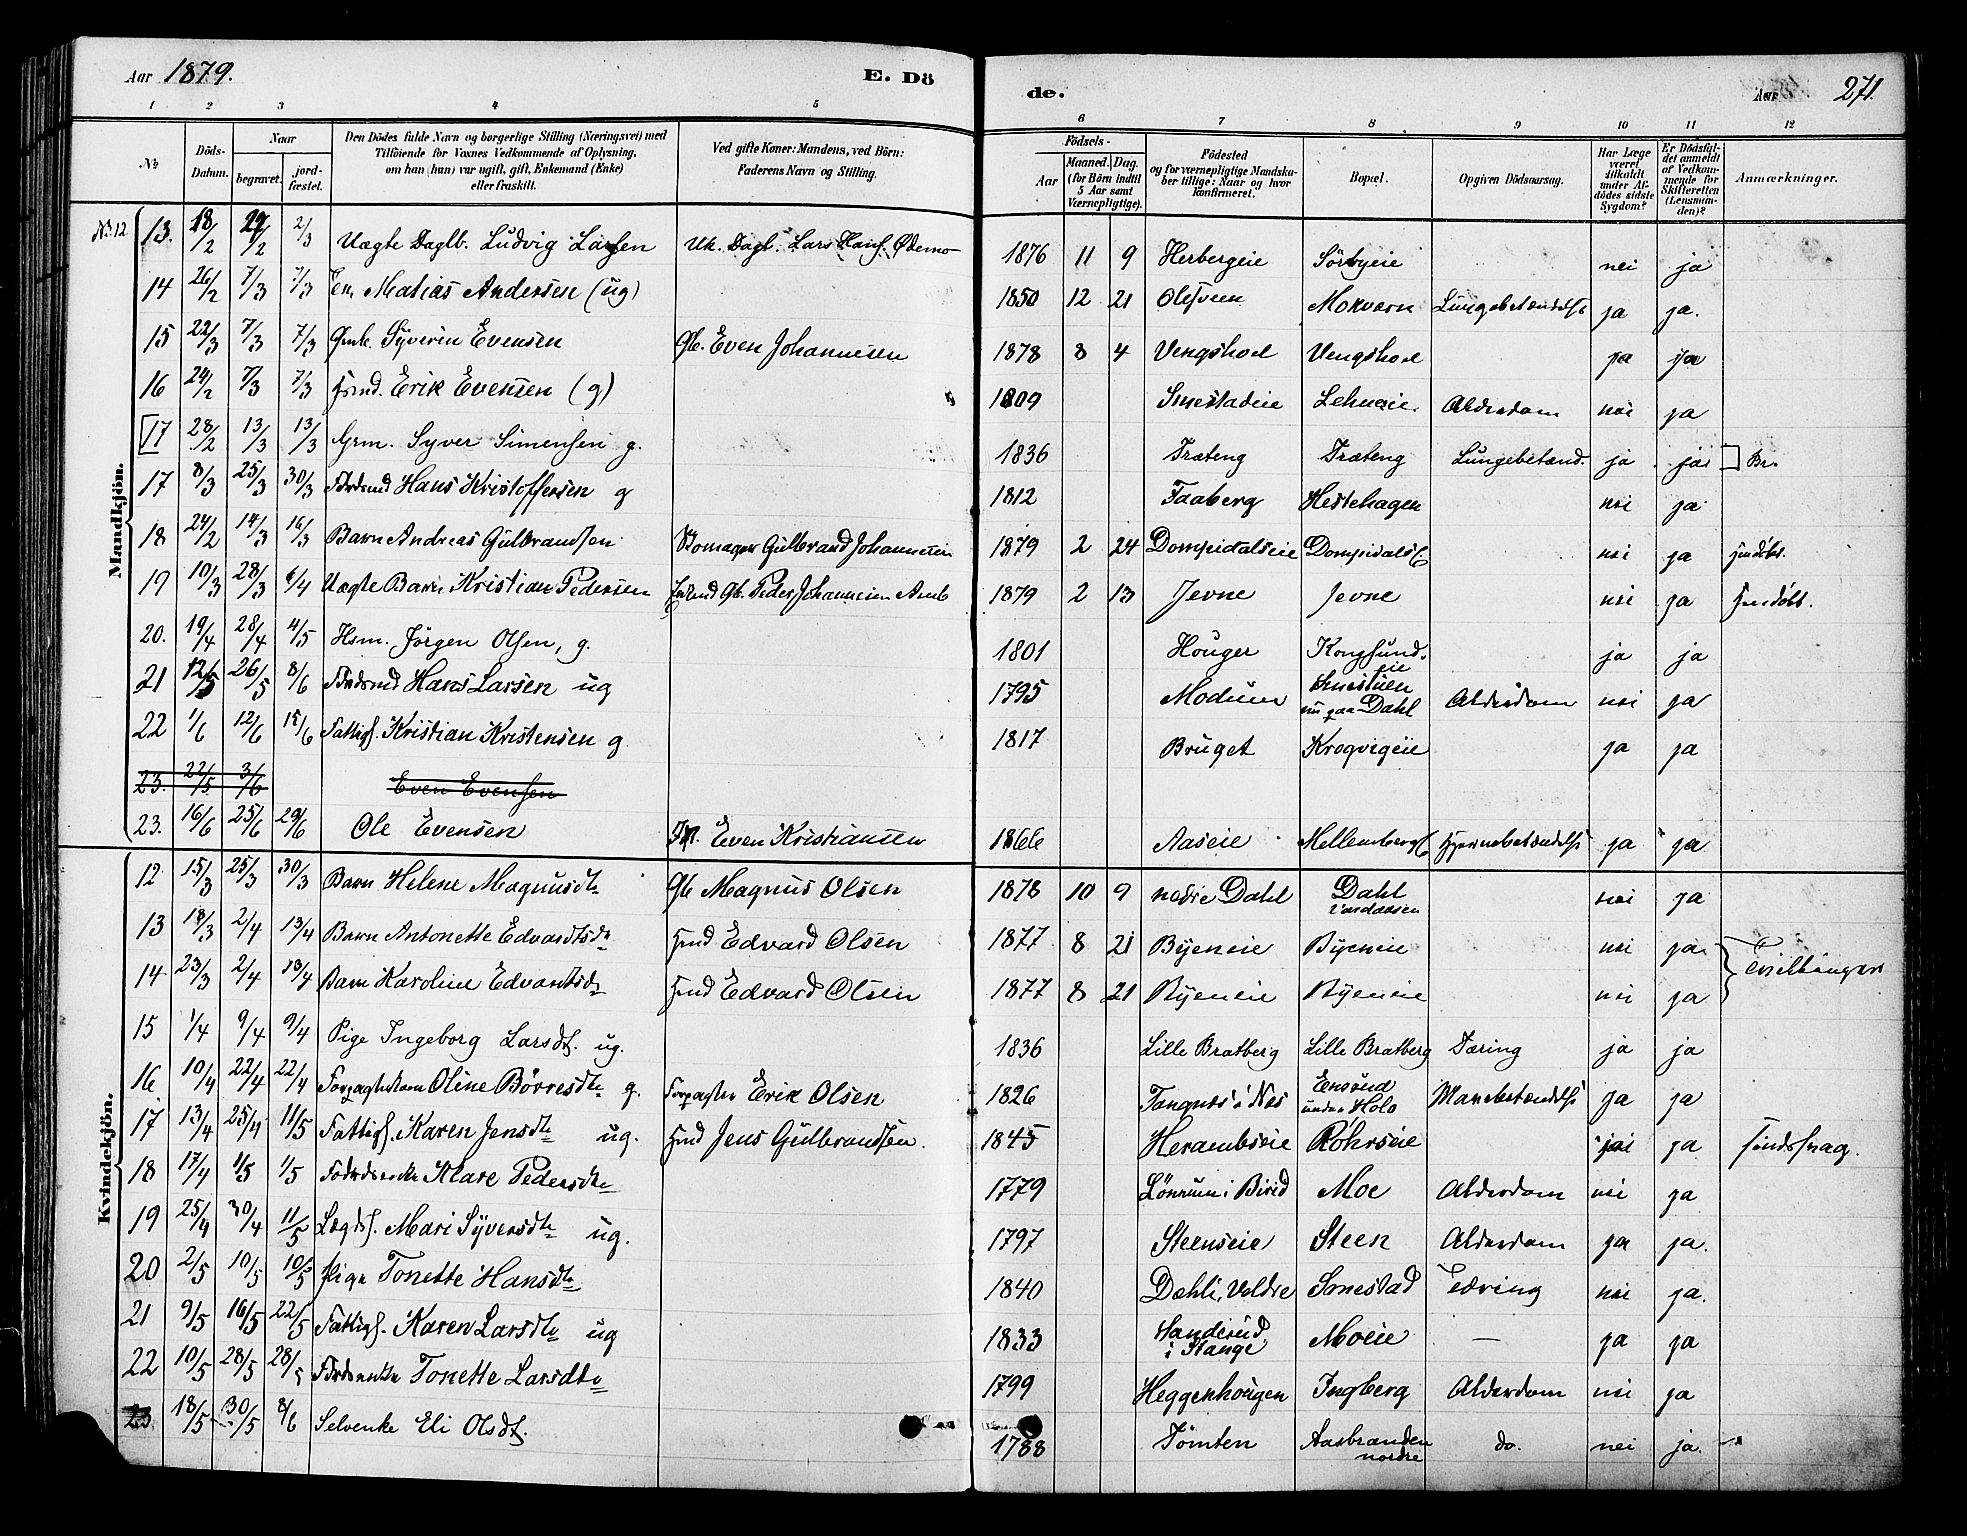 Aar 1879. E. Dö de. Aar 271.
1 2 3 4 5 6 7 8 9 10 11 12
№ Döds-Datum. Naar begravet. jord-fæstet. Den Dödes fulde Navn og borgerlige Stilling (Næringsvei) med Tilföiende for Voxnes Vedkommende af Oplysning, om han (hun) var ugift, gift, Enkemand (Enke) eller fraskilt. Ved gifte Koner: Mandens, ved Börn: Faderens Navn og Stilling. Födsels- Aar Maaned. Dag. (for Börn indtil 5 Aar samt Værnepligtige). Födested og for værnepligtige Mandskaber tillige: Naar og hvor konfirmeret. Bopæl. Opgiven Dödsaarsag. Har Læge været tilkaldt under Afdödes sidste Sygdom? Er Dödsfaldet anmeldt af Vedkommende for Skifteretten (Lensmanden)? Anmærkninger.
Mandkjön.
No 12 13. 18/2 2/3 Uægte Daglb. Ludvig Larsen Uk. Dagl. Lars Hans. Ødemo 1876 11 9 Herbergeie Sörbyeie nei ja
14 26/2 7/3 7/3 Em Matias Andersen (ug) 1850 12 21 Olsveen Mokvern Lungebetændelse ja ja.
15 22/3 7/3 7/3 Gmb. Syverin Evensen Gb. Even Johannesen 1878 8 4 Vengshoel Vengshoel ja ja
16 24/2 7/3 7/3 Hsmd. Erik Evensen (g) 1809 Smestadeie Lehneeie Alderdom nei ja
17 28/2 13/3 13/3 Grm. Syver Simensen g. 1836 Træteng Træteng Lungebetænd. ja ja Br.
17 8/3 25/3 30/3 Födsmd Hans Kristoffersen g 1812 Faaberg Hestehagen nei ja
18 24/2 14/3 16/3 Barn Andreas Gulbrandsen Skomager Gulbrand Johannesen 1879 2 24 Dompidalseie Dompidalse nei ja Hmdøbt.
19 10/3 28/3 6/4 Uægte Barn Kristian Pedersen Gb. Peder Johannesen Aml 1879 2 13 Jevne Jevne nei ja Hmdøbt.
20. 19/4 28/4 4/5 Hsm. Jörgen Olsen, g. 1801 Houger Kongsund.eie ja ja
21 12/5 26/5 8/6 Födsmd Hans Larsen ug 1795 Modum Smestuen nu paa Dahl Alderdom nei ja
22 1/6 12/6 15/6 Fattigl. Kristian Kristensen g 1817 Bruget Krogvigeie ja ja
23. 22/5 3/6 Even Evensen
23. 16/6 25/6 29/6 Ole Evensen Even Kristiansen 1866 Aaseie Mellembergs Hjernebetændelse ja ja
Kvindekjön.
12 15/3 25/3 30/3 Barn Helene Magnusdtr Gb Magnus Olsen 1878 10 9 nedre Dahl Dahl nei ja
13 18/3 2/4 13/4 Barn Antonette Edvardsdtr Hmd Edvard Olsen 1877 8 21 Byeneie Byeneie nei ja. Tvillinger
14 23/3 2/4 13/4 Barn Karoline Edvardsdtr Hmd Edvard Olsen 1877 8 21 Byeneie Byeneie nei ja
15 1/4 9/4 9/4 Pige Ingeborg Larsdt. ug. 1836 Lille Bratberg Lille Bratberg Tæring ja ja
16 10/4 22/4 22/4 Forpagterkone Oline Börresdtr g. Forpagter Erik Olsen 1826 Tangnes i Nes Ensund under Holo Mavebetændelse ja ja
17 13/4 25/4 11/5 Fattigl. Karen Jensdtr ug. Hmd Jens Gulbrandsen. 1845 Herambseie Röhrseie ja Sindssvag.
18 17/4 1/5 1/5 Födrdsenke Mare Pedersdtr 1779 Lönrum i Birid Moe Alderdom nei ja
19 25/4 30/4 11/5 Lægdsl. Mari Syversdtr ug. 1797 Steenseie Steen Alderdom ja ja.
20 2/5 10/5 10/5 Pige Tonette Hansdtr 1840 Dæhli, Veldre Smestad Tæring nei ja.
21 9/5 16/5 22/5 Fattigl. Karen Larsdtr ug 1833 Sanderud i Stange Moeie — ja ja
22 10/5 28/5 28/5 Födrdsenke Tonette Larsdtr 1799 Heggenhougen Ingberg Alderdom nei ja
23 18/5 30/5 8/6 Selvenke Eli Olsdt. 1788 Tömten Aasbrænden nordre do. nei ja.